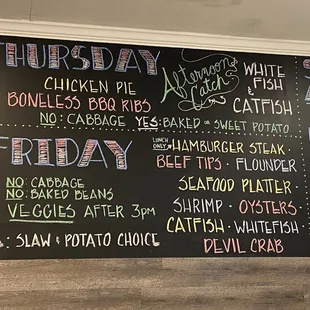 THURSDAY
CHICKEN PIE
BONELESS BBQ RIBS
NO: CABBAGE YES: BAKED OR SWEET POTATO
Afternoon Catch
WHITE
FISH
&
CATFISH
FRIDAY
NO: CABBAGE
NO: BAKED BEANS
VEGGIES AFTER 3pm
: SLAW & POTATO CHOICE
LUNCH ONLY HAMBURGER STEAK
BEEF TIPS · FLOUNDER
SEAFOOD PLATTER ·
SHRIMP · OYSTERS ·
CATFISH · WHITEFISH
DEVIL CRAB